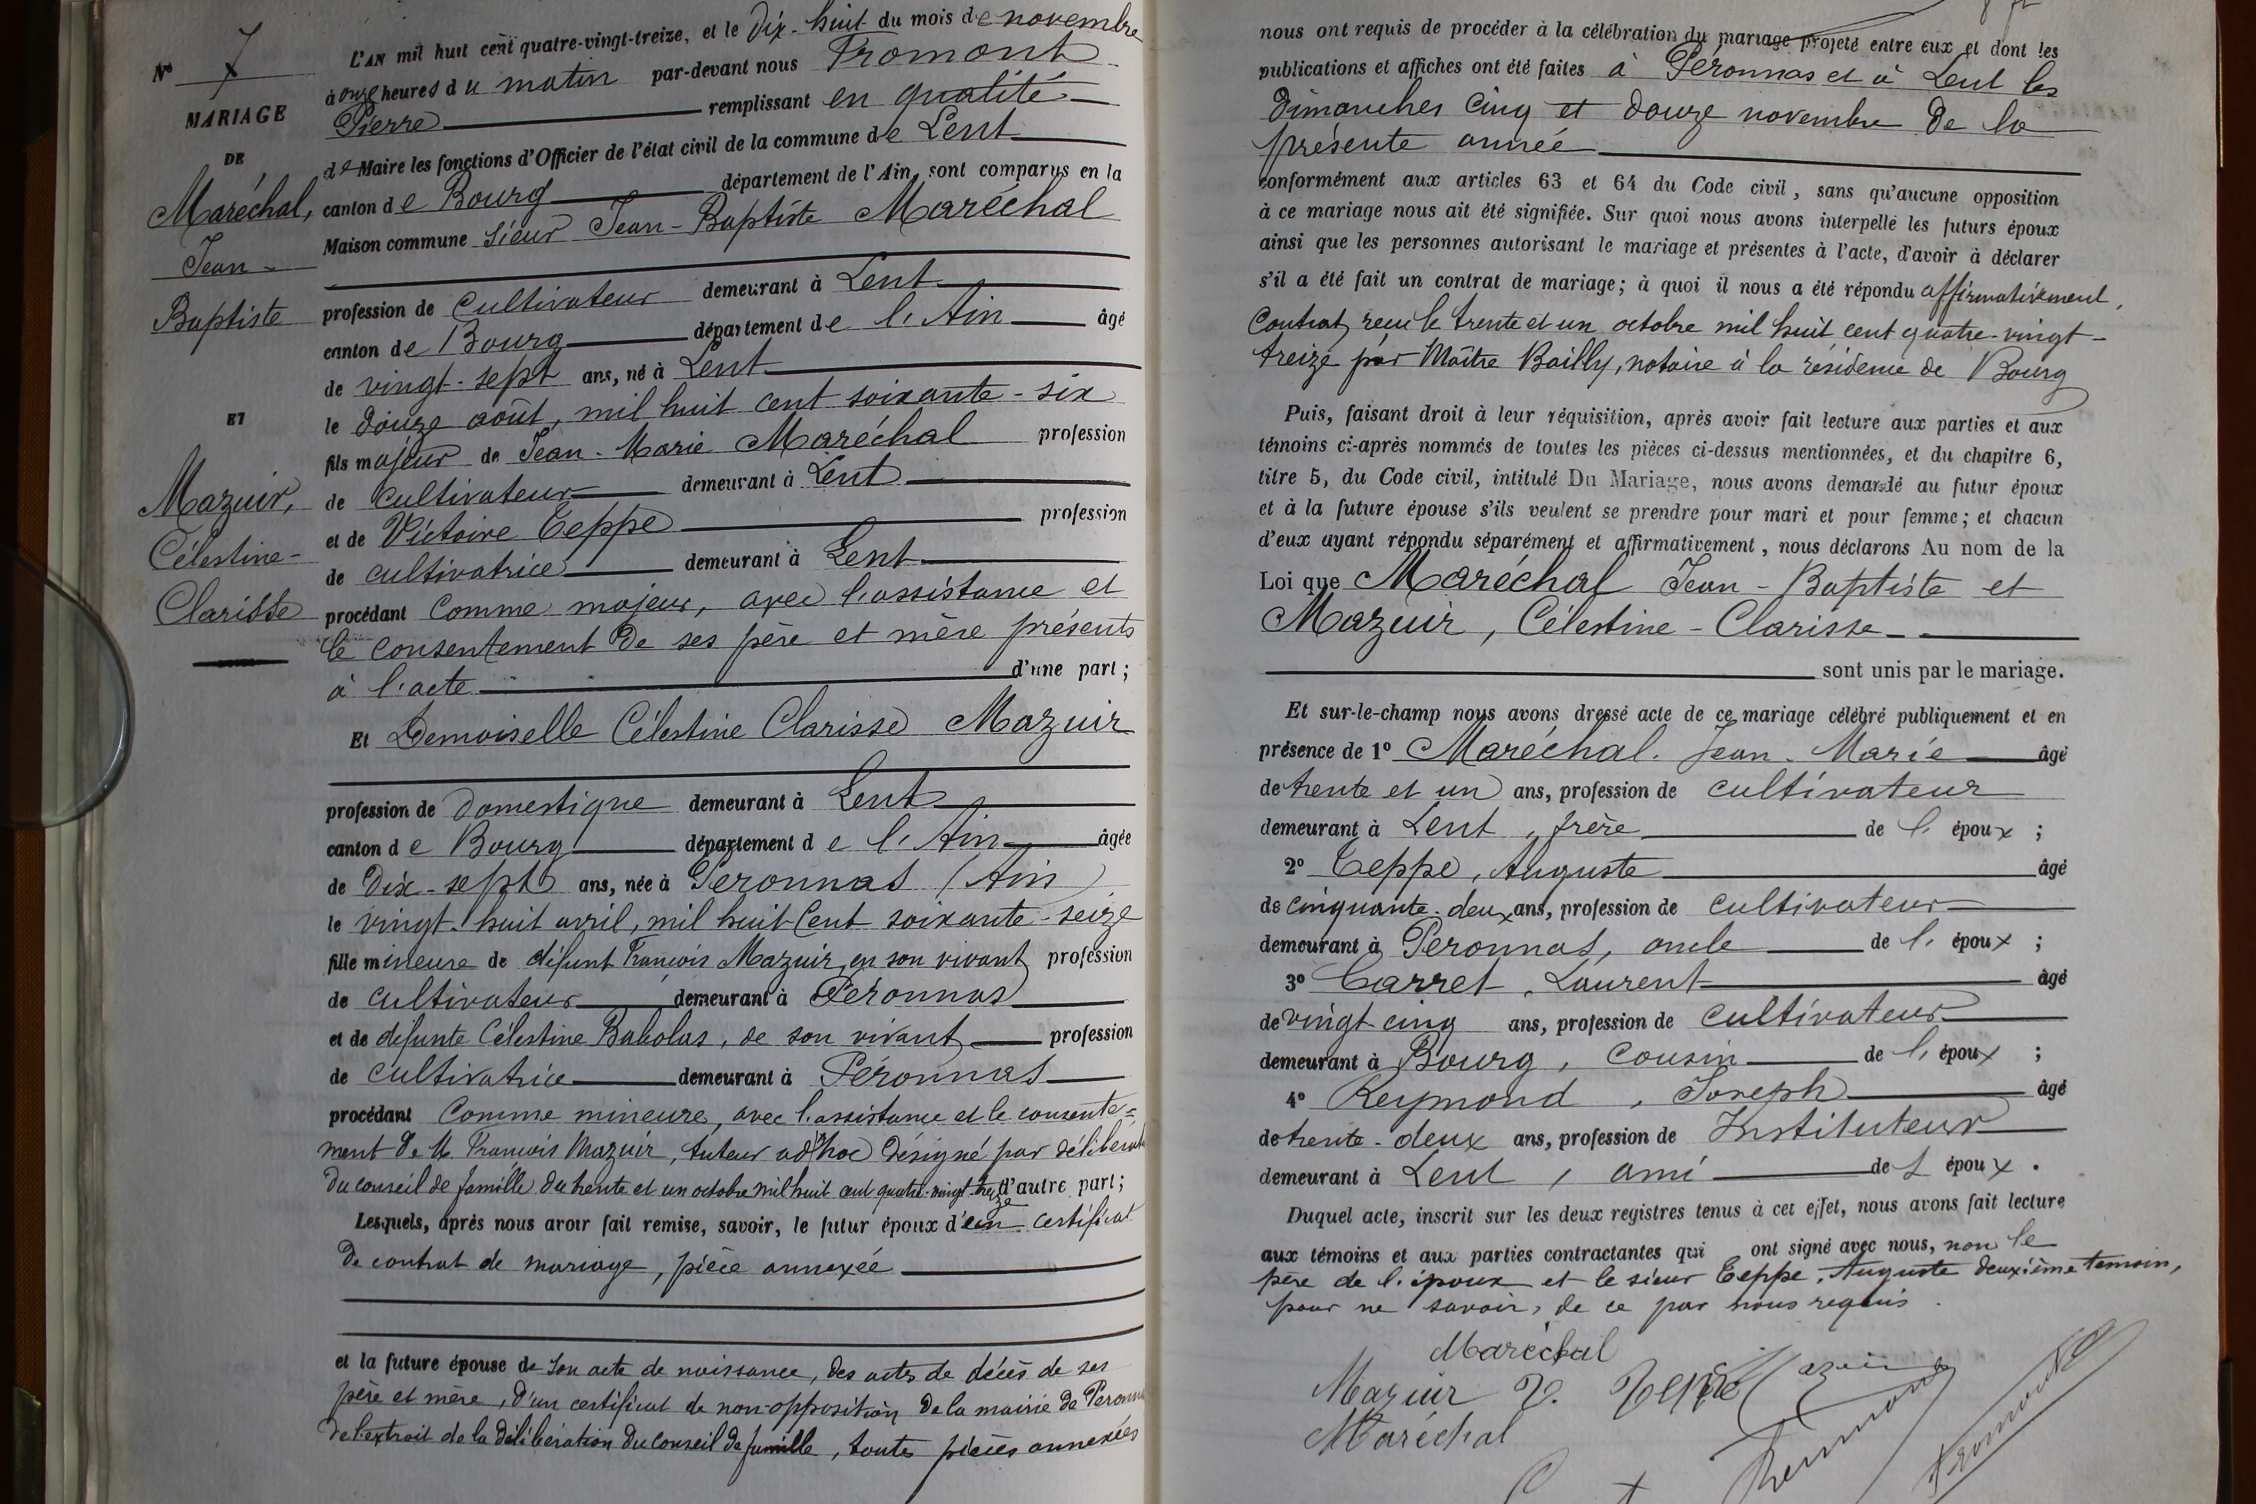 N° 7
MARIAGE
DE
Maréchal,
Jean-
Baptiste
ET
Mazuir,
Célestine-
Clarisse
L'AN mil huit cent quatre-vingt-treize, et le Dix-huit du mois de novembre
à onze heures du matin par-devant nous Fromont
Pierre remplissant en qualité
de Maire les fonctions d'Officier de l'état civil de la commune de Lent
canton de Bourg département de l'Ain, sont comparus en la
Maison commune sieur Jean-Baptiste Maréchal
profession de cultivateur demeurant à Lent
canton de Bourg département de l'Ain âgé
de vingt-sept ans, né à Lent
le douze août, mil huit cent soixante-six
fils majeur de Jean-Marie Maréchal profession
de cultivateur demeurant à Lent
et de Victoire Teppe profession
de cultivatrice demeurant à Lent
procédant comme majeur, avec l'assistance et
le consentement de ses père et mère présents
à l'acte d'une part;
Et Demoiselle Célestine Clarisse Mazuir
profession de domestique demeurant à Lent
canton de Bourg département de l'Ain âgée
de Dix-sept ans, née à Péronnas (Ain)
le vingt-huit avril, mil huit cent soixante-seize
fille mineure de défunt François Mazuir, en son vivant profession
de cultivateur demeurant à Péronnas
et de défunte Célestine Babolas, de son vivant profession
de cultivatrice demeurant à Péronnas
procédant comme mineure, avec l'assistance et le consente=
ment de M. François Mazuir, tuteur ad'hoc désigné par délibérat
du conseil de famille du trente et un octobre mil huit cent quatre-vingt-treize d'autre part;
Lesquels, après nous avoir fait remise, savoir, le futur époux d'un certificat
de contrat de mariage, pièce annexée
et la future épouse de son acte de naissance, des actes de décès de ses
père et mère, d'un certificat de non-opposition de la mairie de Péronn
de l'extrait de la délibération du conseil de famille, toutes pièces annexées
nous ont requis de procéder à la célébration du mariage projeté entre eux et dont les
publications et affiches ont été faites à Péronnas et à Lent les
Dimanches cinq et douze novembre de la
présente année
conformément aux articles 63 et 64 du Code civil, sans qu'aucune opposition
à ce mariage nous ait été signifiée. Sur quoi nous avons interpellé les futurs époux
ainsi que les personnes autorisant le mariage et présentes à l'acte, d'avoir à déclarer
s'il a été fait un contrat de mariage; à quoi il nous a été répondu affirmativement,
Contrat reçu le trente et un octobre mil huit cent quatre-vingt-
treize par Maître Bailly, notaire à la résidence de Bourg
Puis, faisant droit à leur réquisition, après avoir fait lecture aux parties et aux
témoins ci-après nommés de toutes les pièces ci-dessus mentionnées, et du chapitre 6,
titre 5, du Code civil, intitulé Du Mariage, nous avons demandé au futur époux
et à la future épouse s'ils veulent se prendre pour mari et pour femme; et chacun
d'eux ayant répondu séparément et affirmativement, nous déclarons Au nom de la
Loi que Maréchal Jean-Baptiste et
Mazuir, Célestine-Clarisse
sont unis par le mariage.
Et sur-le-champ nous avons dressé acte de ce mariage célébré publiquement et en
présence de 1° Maréchal. Jean-Marie âgé
de trente et un ans, profession de cultivateur
demeurant à Lent, frère de l'époux;
2° Teppe, Auguste âgé
de cinquante-deux ans, profession de cultivateur
demeurant à Péronnas, oncle de l'époux;
3° Carret, Laurent âgé
de vingt-cinq ans, profession de cultivateur
demeurant à Bourg, cousin de l'époux;
4° Reymond, Joseph âgé
de trente-deux ans, profession de Instituteur
demeurant à Lent, ami de l'époux.
Duquel acte, inscrit sur les deux registres tenus à cet effet, nous avons fait lecture
aux témoins et aux parties contractantes qui ont signé avec nous, non le
père de l'époux et le sieur Teppe, Auguste deuxième temoin,
pour ne savoir, de ce par nous requis.
Maréchal
Mazuir V. Teppe Mazuir
Maréchal
Reymond
Fromont